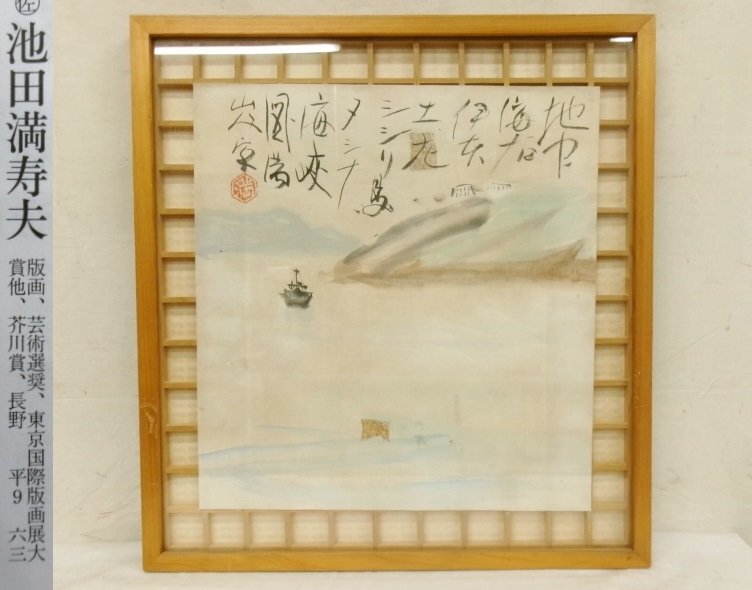 佐
池田満寿夫
版画、芸術選奨、東京国際版画展大
賞他、芥川賞、長野 平9 六三
地中
海右
シシリ島
メシナ
海峡
満